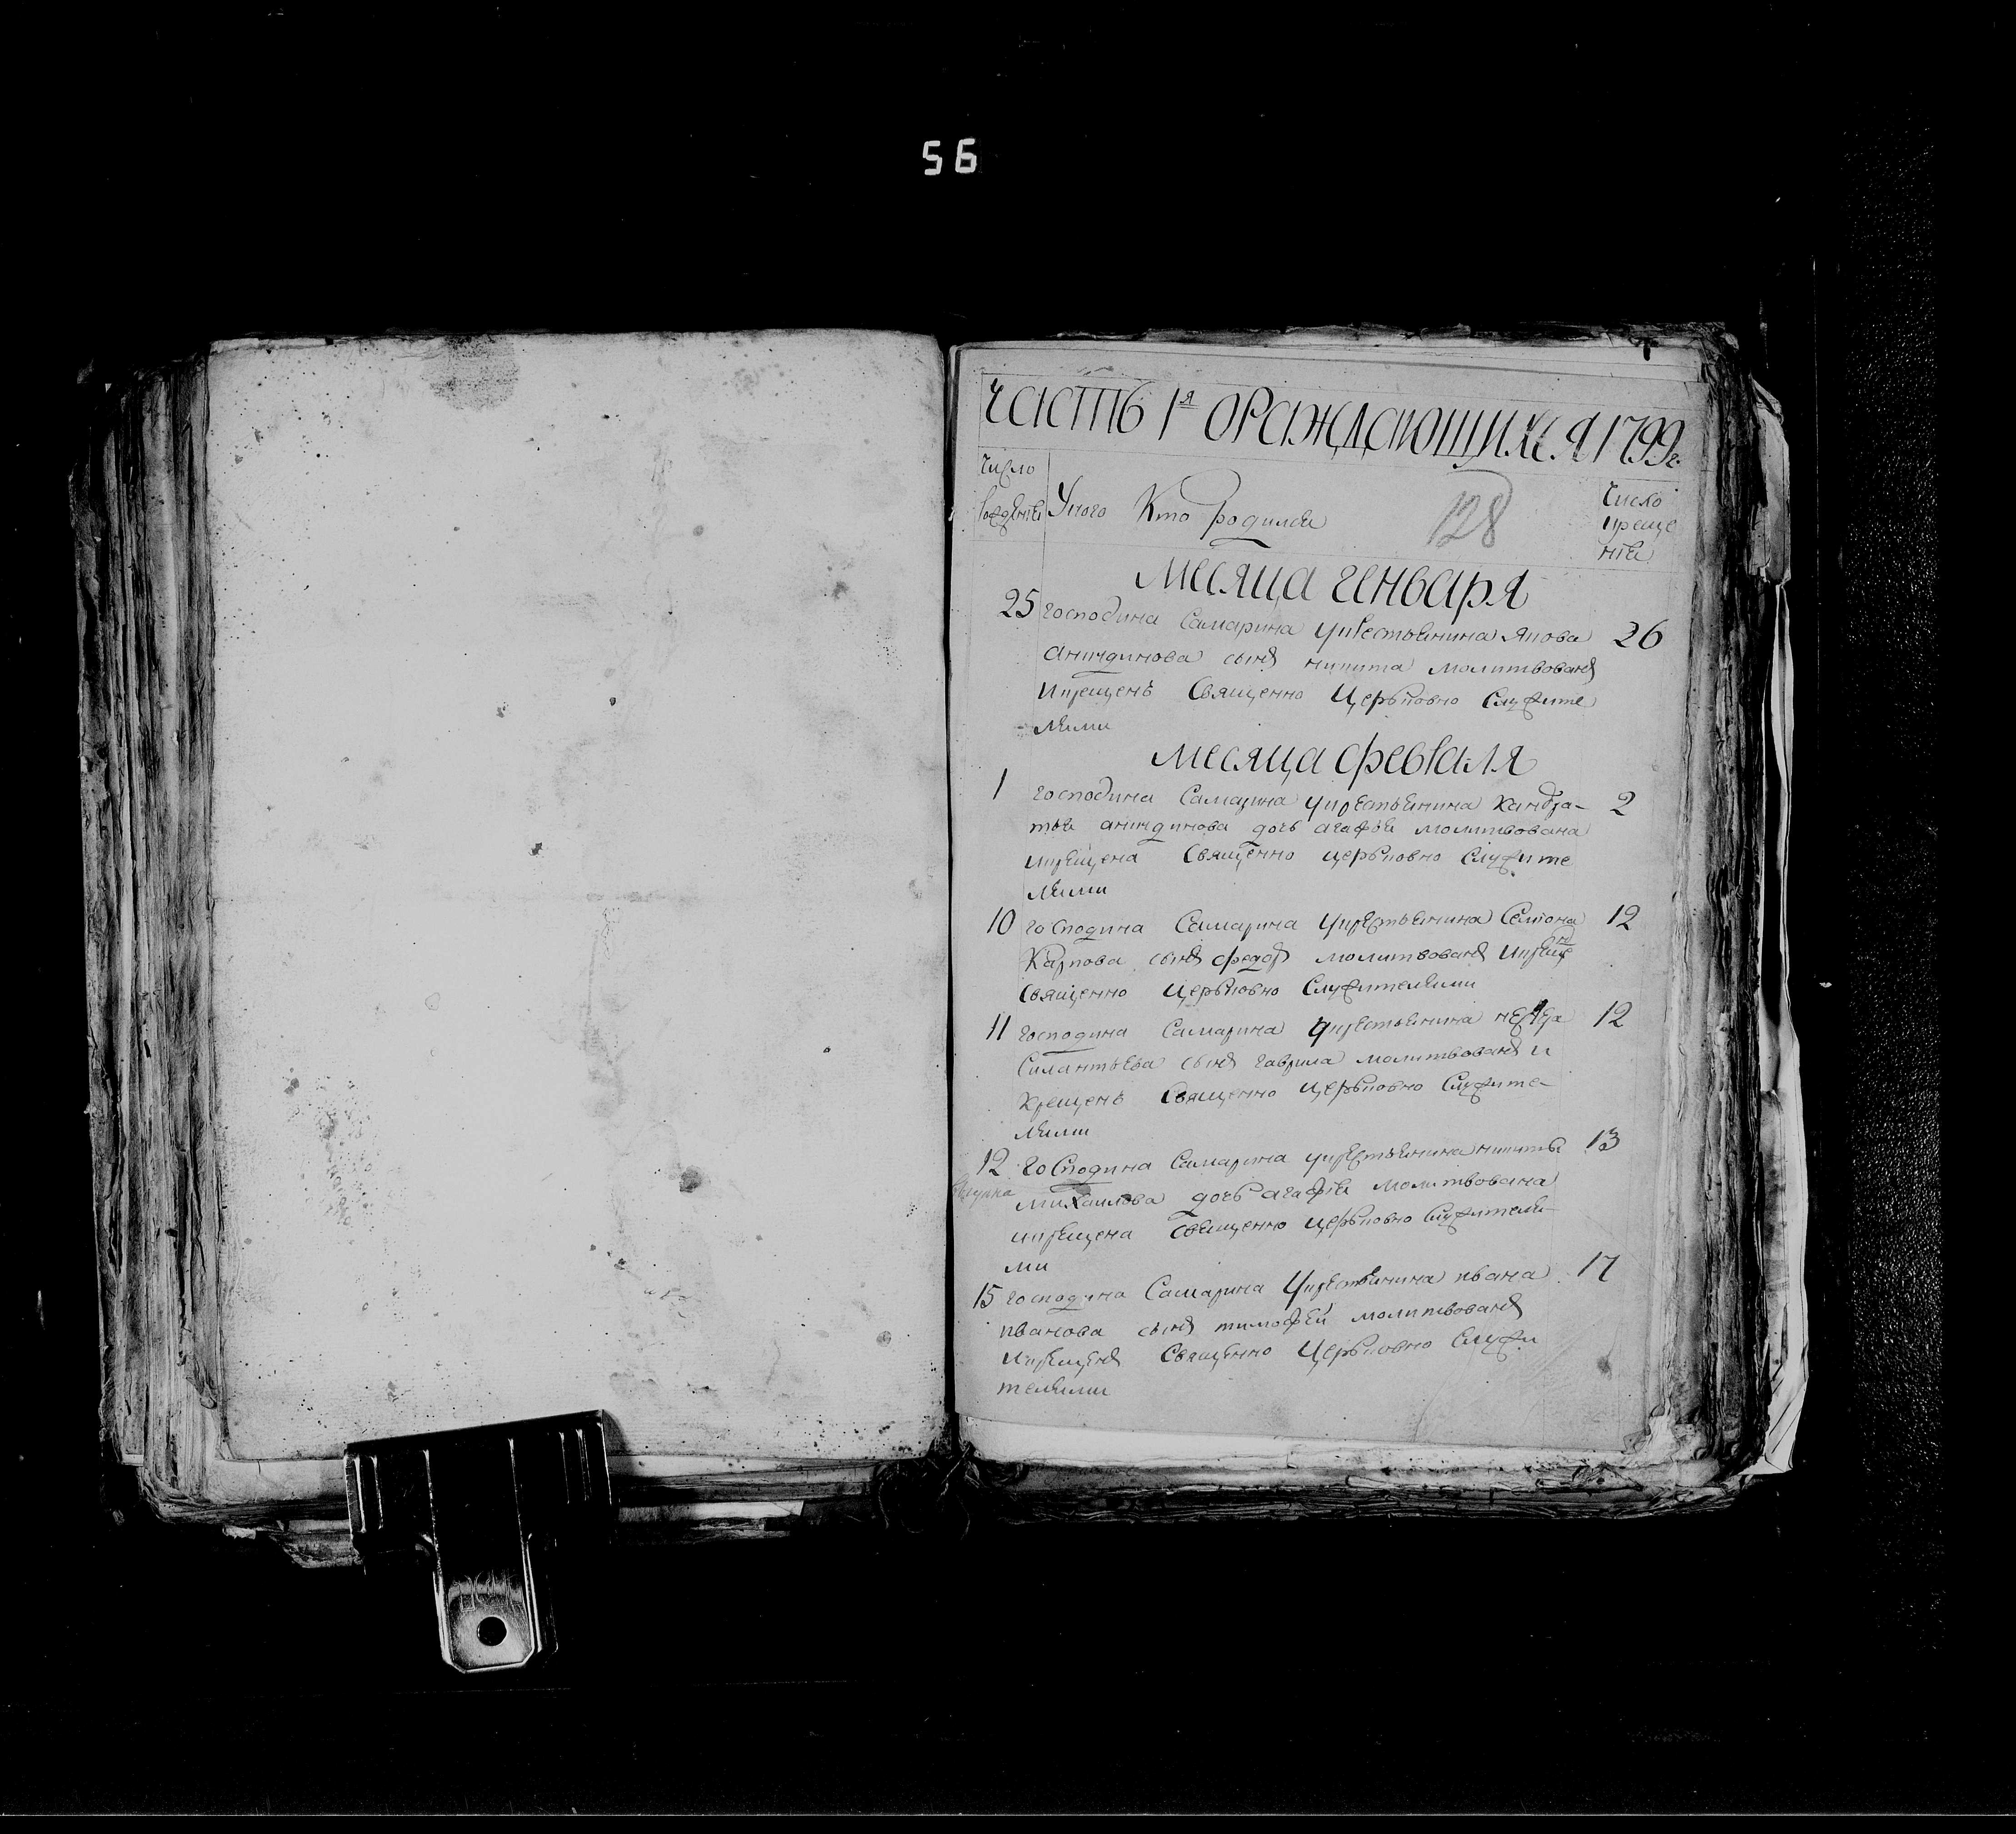 56
ЧАСТЬ 1я О РАЖДАЮЩИХСЯ 1799г.
Число рожденiя
Укого Кто родился
128
Число крещенiя
Месяца генваря
25 господина Самарина укрестьянина якова 26
аникинова сынъ никита молитвованъ
икрещенъ Священно Церьковно Служите
лями
месяца февраля
1 господина Самарина укрестьянина Кандра- 2
тья дочь агафья молитвована
икрещена Священно церьковно Служите
лями
10 госПодина Самарина укрестьянина Семiона 12
Карпова сынъ федоръ молитвованъ икрещенъ
Священно Церьковно Служителями
11 господина Самарина укрестьянина 12
Силантьева сынъ гаврила молитвованъ и
Крещенъ Священно Церьковно Служите-
лями
12 госПодина Самарина укрестьянина никиты 13
михаилова дочь агафiя молитвована
икрещена Священно Церьковно Служителя-
ми
15 господина Самарина Укрестьянина ивана 17
иванова сынъ тимофей молитвованъ
икрещенъ Священно Церьковно Служи
телями